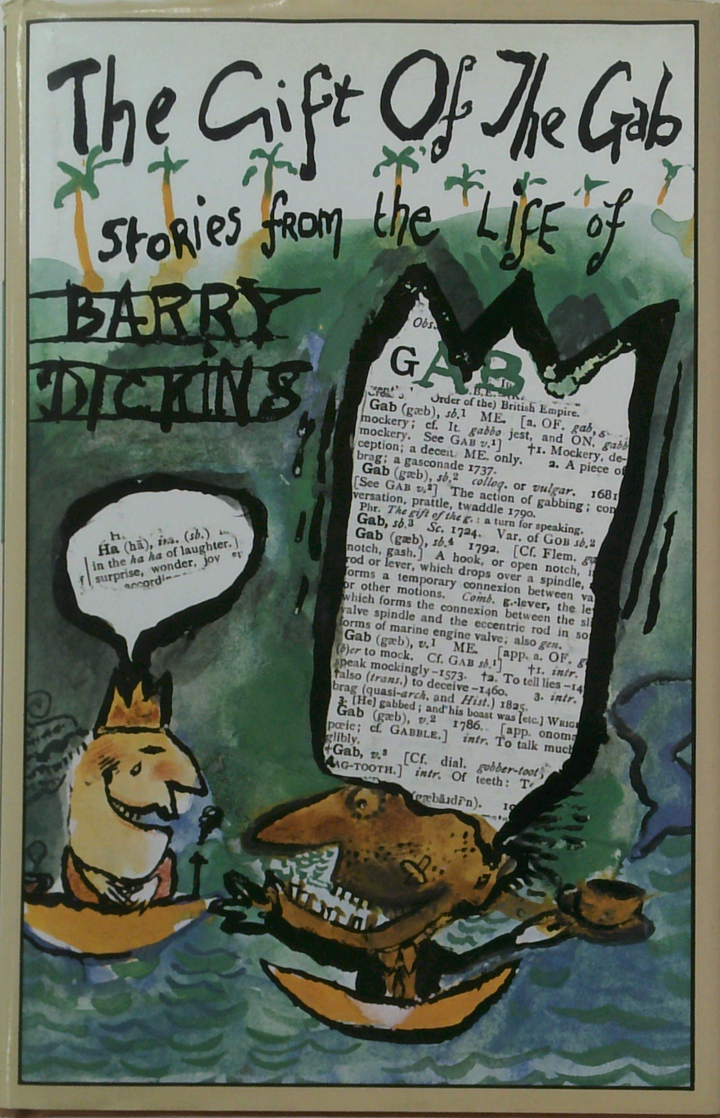 The Gift Of The Gab
stories from the Life of
BARRY
DICKINS
Obs.
GAB
Order of the) British Empire.
Gab (gæb), sb.¹ ME. [a. OF. gab,
mockery; cf. It. gabbo jest, and ON. gabb
mockery. See GAB v.¹] †1. Mockery, de-
ception; a deceit ME. only. 2. A piece of
brag; a gasconade 1737.
Gab (gæb), sb.² colloq. or vulgar. 1681
[See GAB v.²] The action of gabbing; con
versation, prattle, twaddle 1790.
Phr. The gift of the g.: a turn for speaking.
Gab, sb.³ Sc. 1724. Var. of GOB sb.²
Gab (gæb), sb.⁴ 1792. [Cf. Flem.
notch, gash.] A hook, or open notch,
rod or lever, which drops over a spindle,
forms a temporary connexion between va
or other motions. Comb. g.-lever, the le
which forms the connexion between the sl
valve spindle and the eccentric rod in so
forms of marine engine valve; also gen.
Gab (gæb), v.¹ ME. [app. a. OF. g
(b)er to mock. Cf. GAB sb.¹] †1. intr.
speak mockingly –1573. †2. To tell lies –14
†also (trans.) to deceive –1460. 3. intr.
brag (quasi-arch. and Hist.) 1825.
3. [He] gabbed; and his boast was [etc.] WRIG
Gab (gæb), v.² 1786. [app. onom
pœic; cf. GABBLE.] intr. To talk much
glibly.
†Gab, v.³ [Cf. dial. gobber-tooth
GAG-TOOTH.] intr. Of teeth: T
Ha (hā), ina. (sb.)
in the ha ha of laughter.]
surprise, wonder, joy
accordi